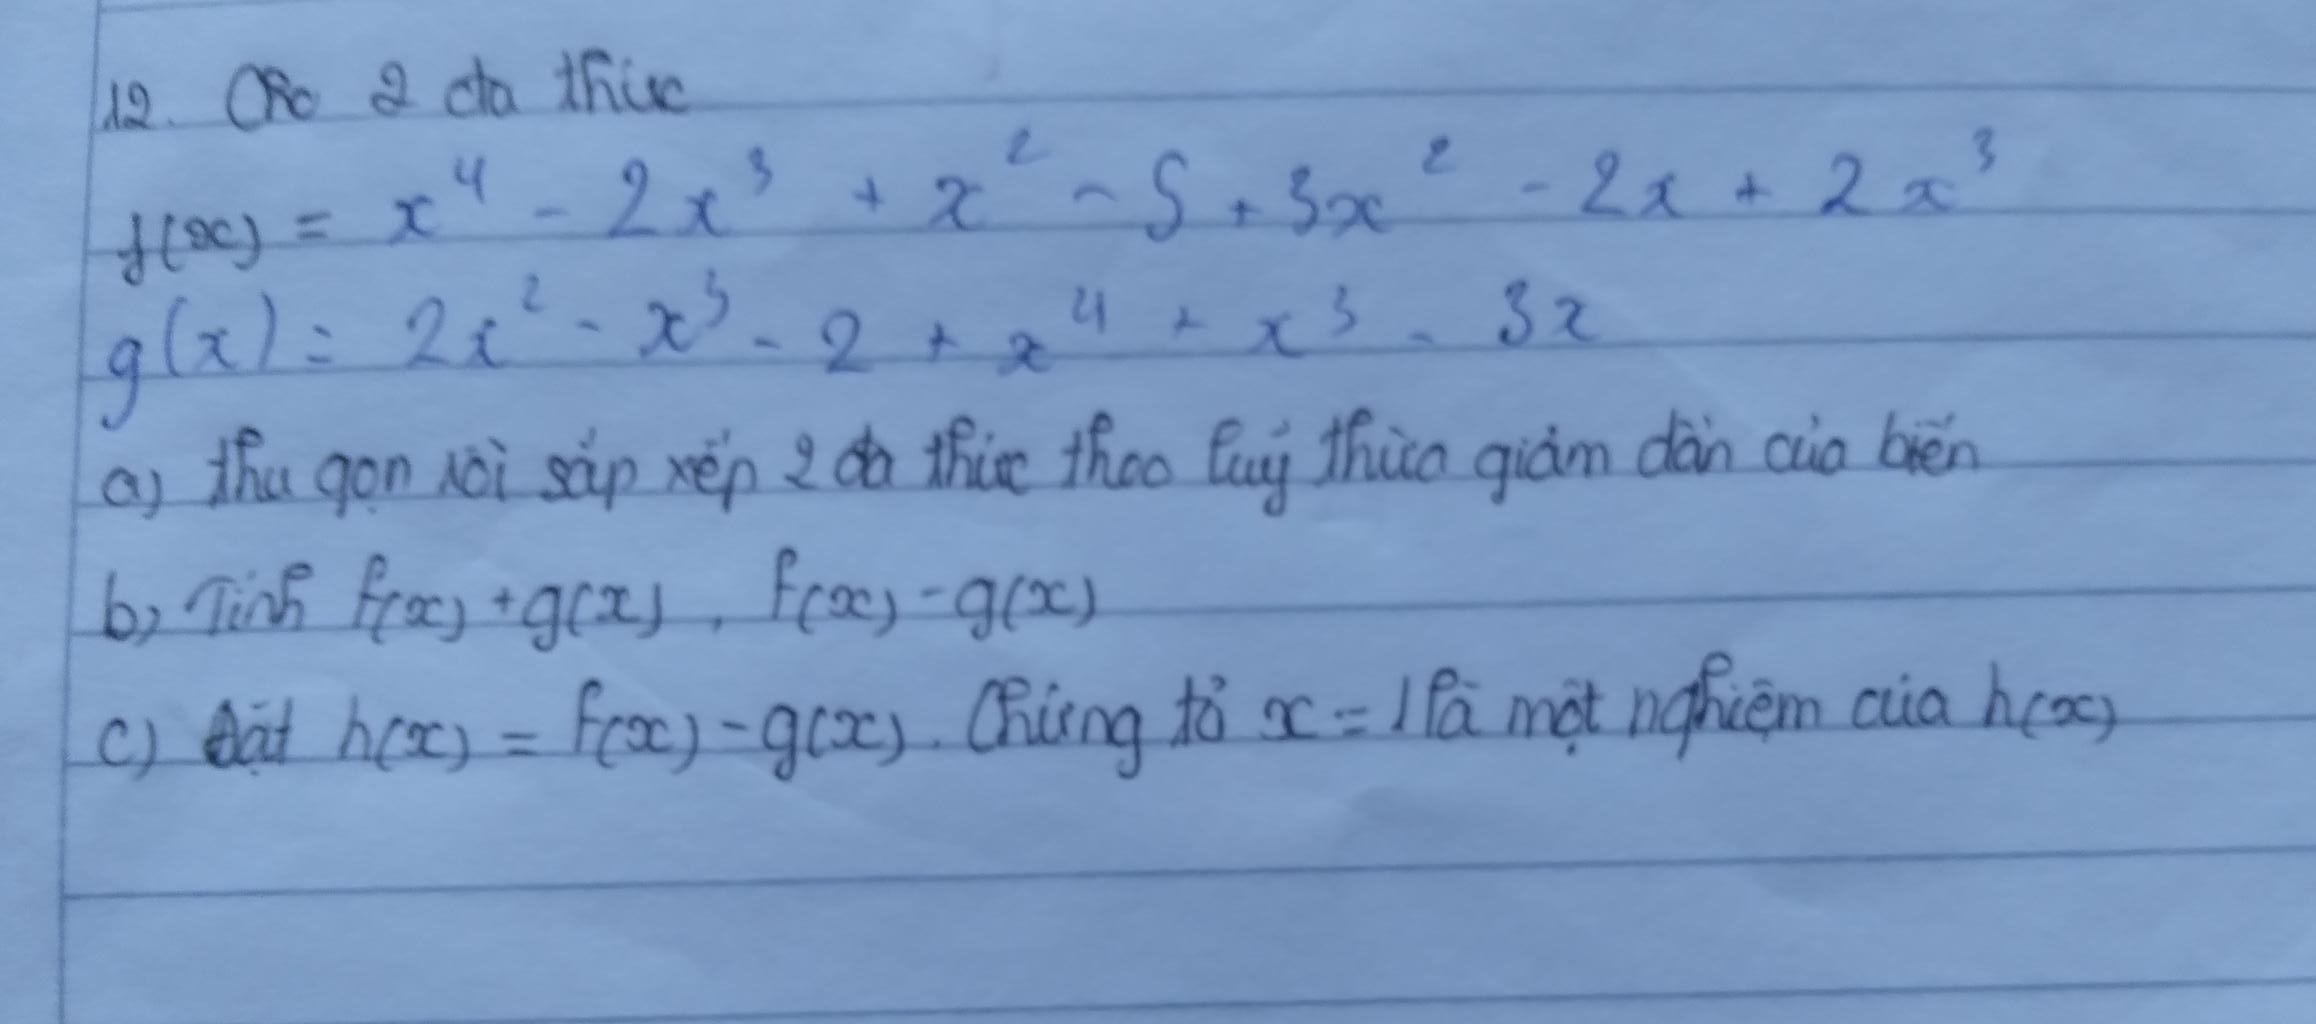 12. Cho 2 đa thức
f(x) = x⁴ - 2x³ + x² - 5 + 3x² - 2x + 2x³
g(x) = 2x² - x³ - 2 + x⁴ + x³ - 3x
a) thu gọn rồi sắp xếp 2 đa thức theo luỹ thừa giảm dần của biến
b) Tính f(x) + g(x), f(x) - g(x)
c) Đặt h(x) = f(x) - g(x). Chứng tỏ x = 1 là một nghiệm của h(x)